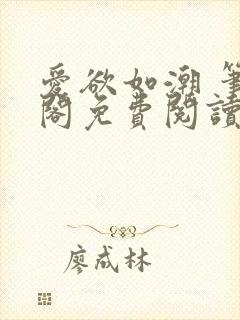 愛欲如潮 筆
閣免費閱讀
廖成林